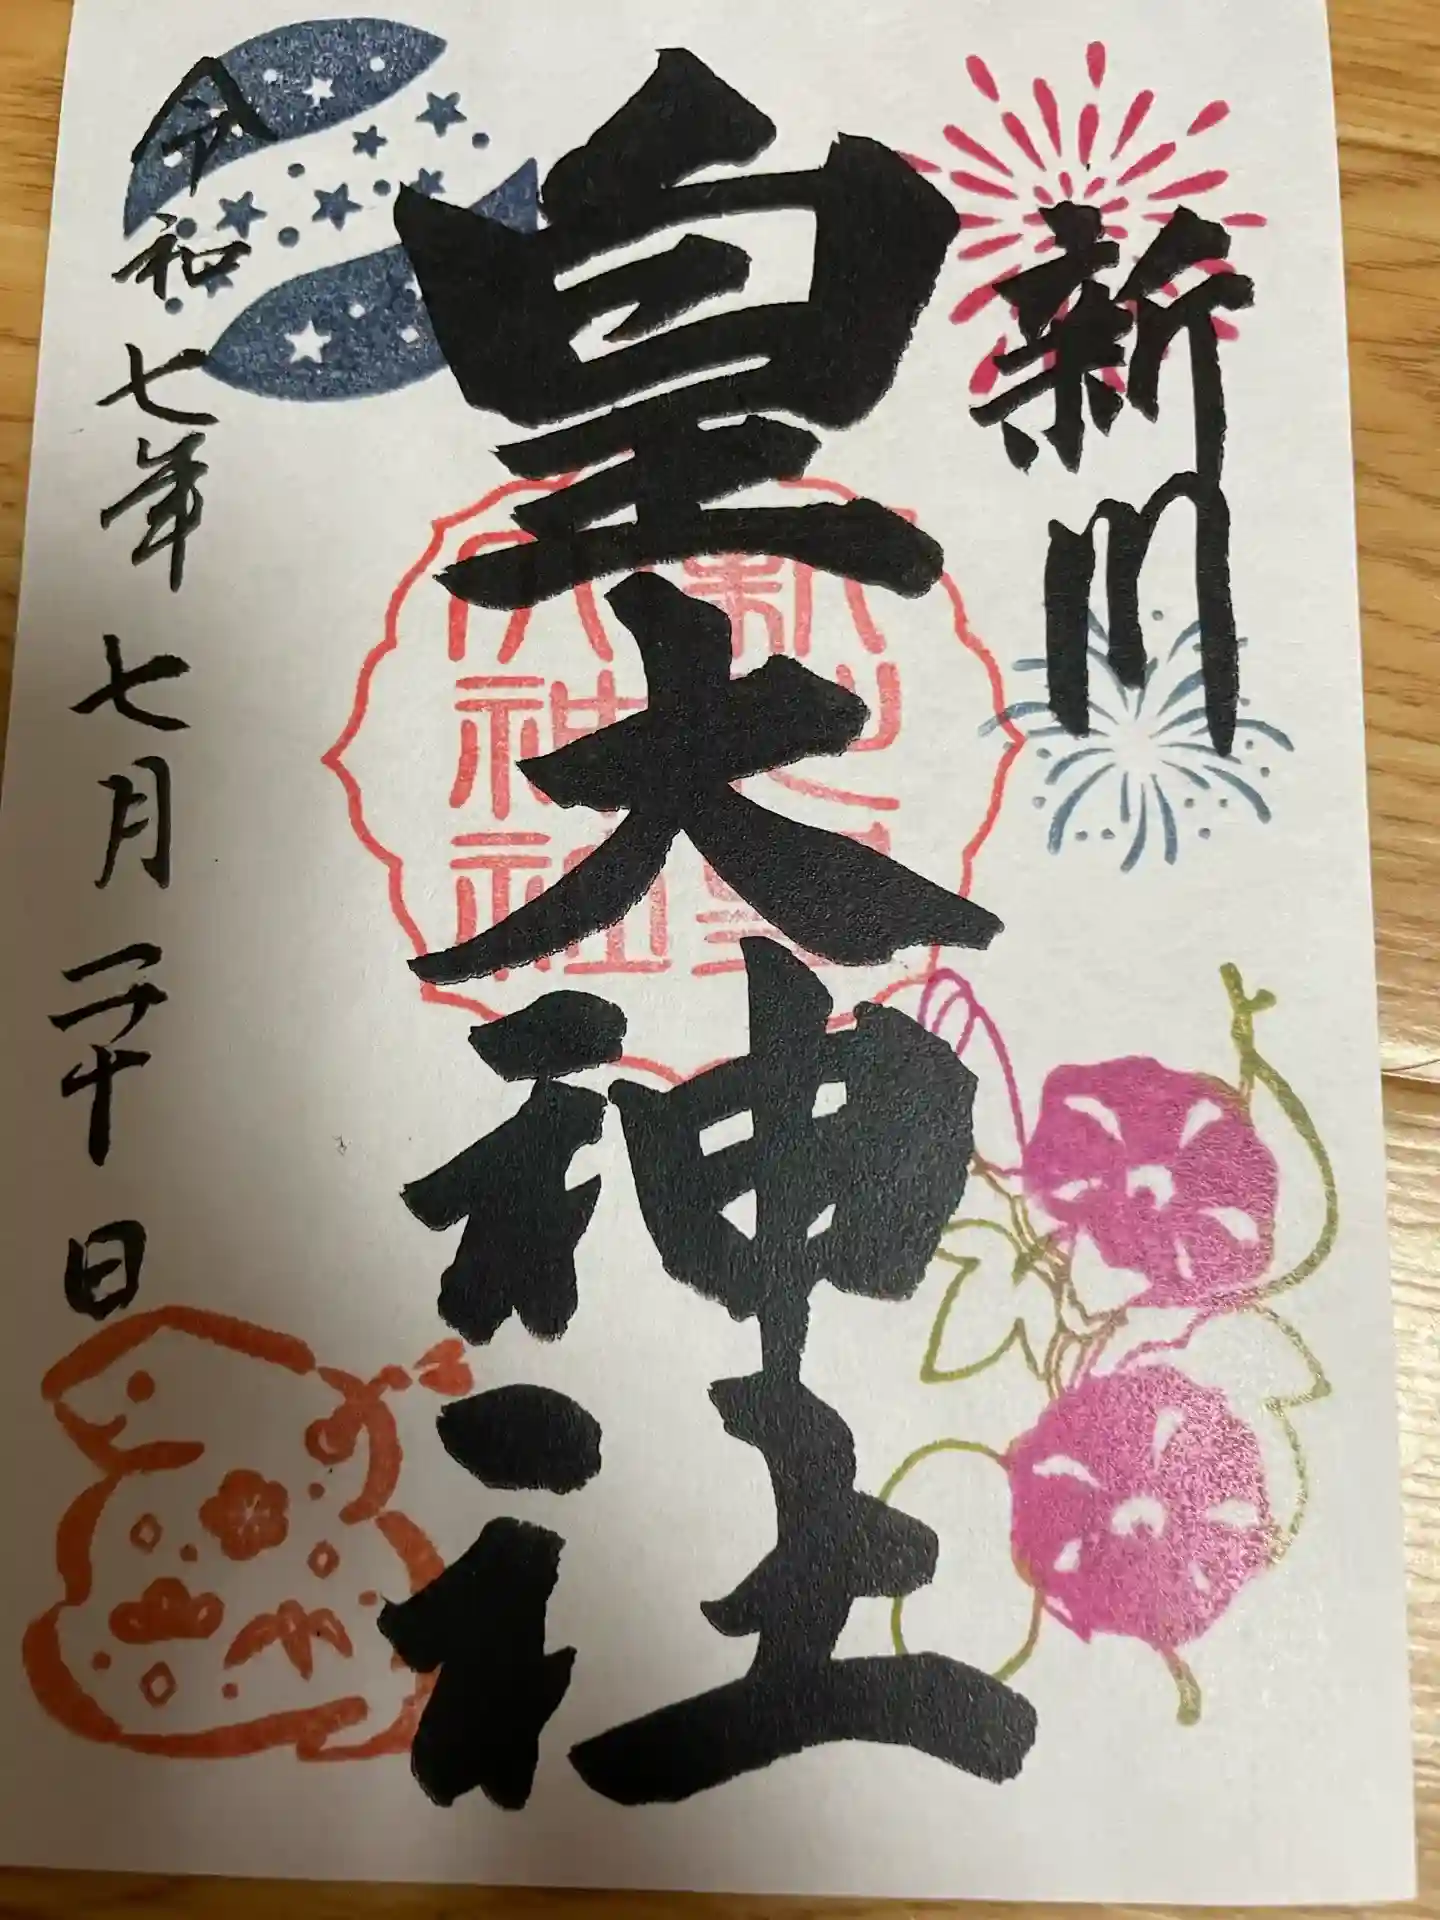 新川
皇大神社
新川皇大神社
令和七年七月二十日